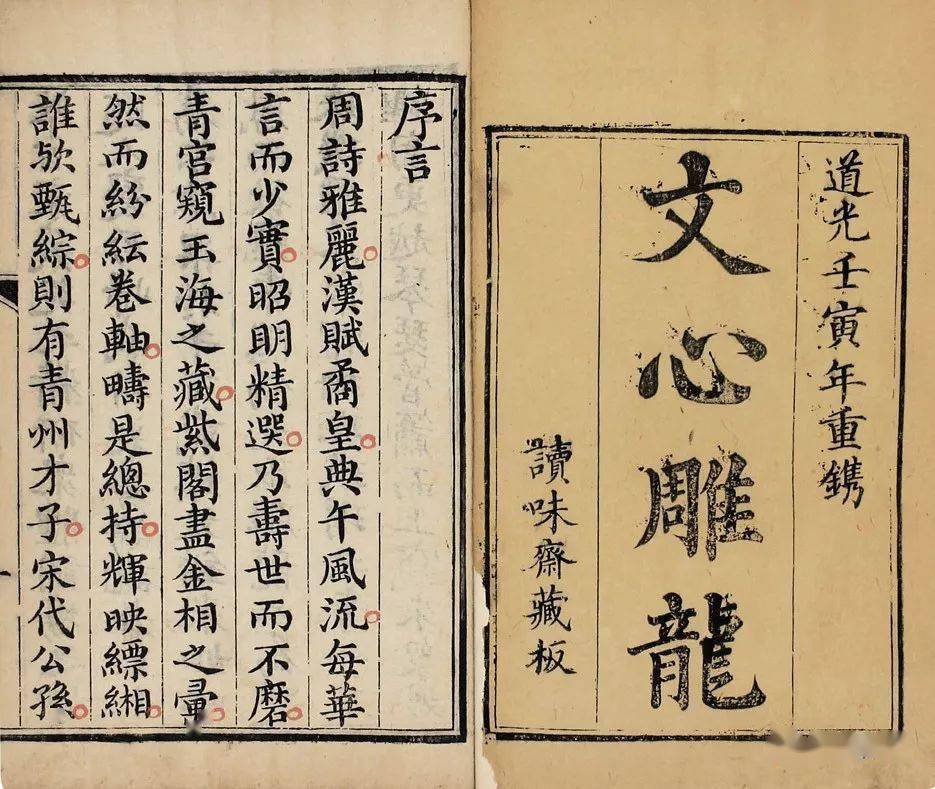 道光壬寅年重鐫
文心雕龍
讀味齋藏板
序言
周詩雅麗漢賦矞皇典午風流每華
言而少實昭明精選乃壽世而不磨
青宮窺玉海之藏紫閣盡金相之彚
然而紛紜卷軸疇是總持輝映縹緗
誰歟甄綜則有青州才子宋代公孫